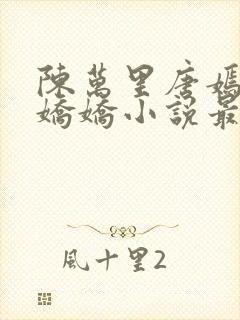 陳萬里唐嫣
嬌嬌小說最
風十里2